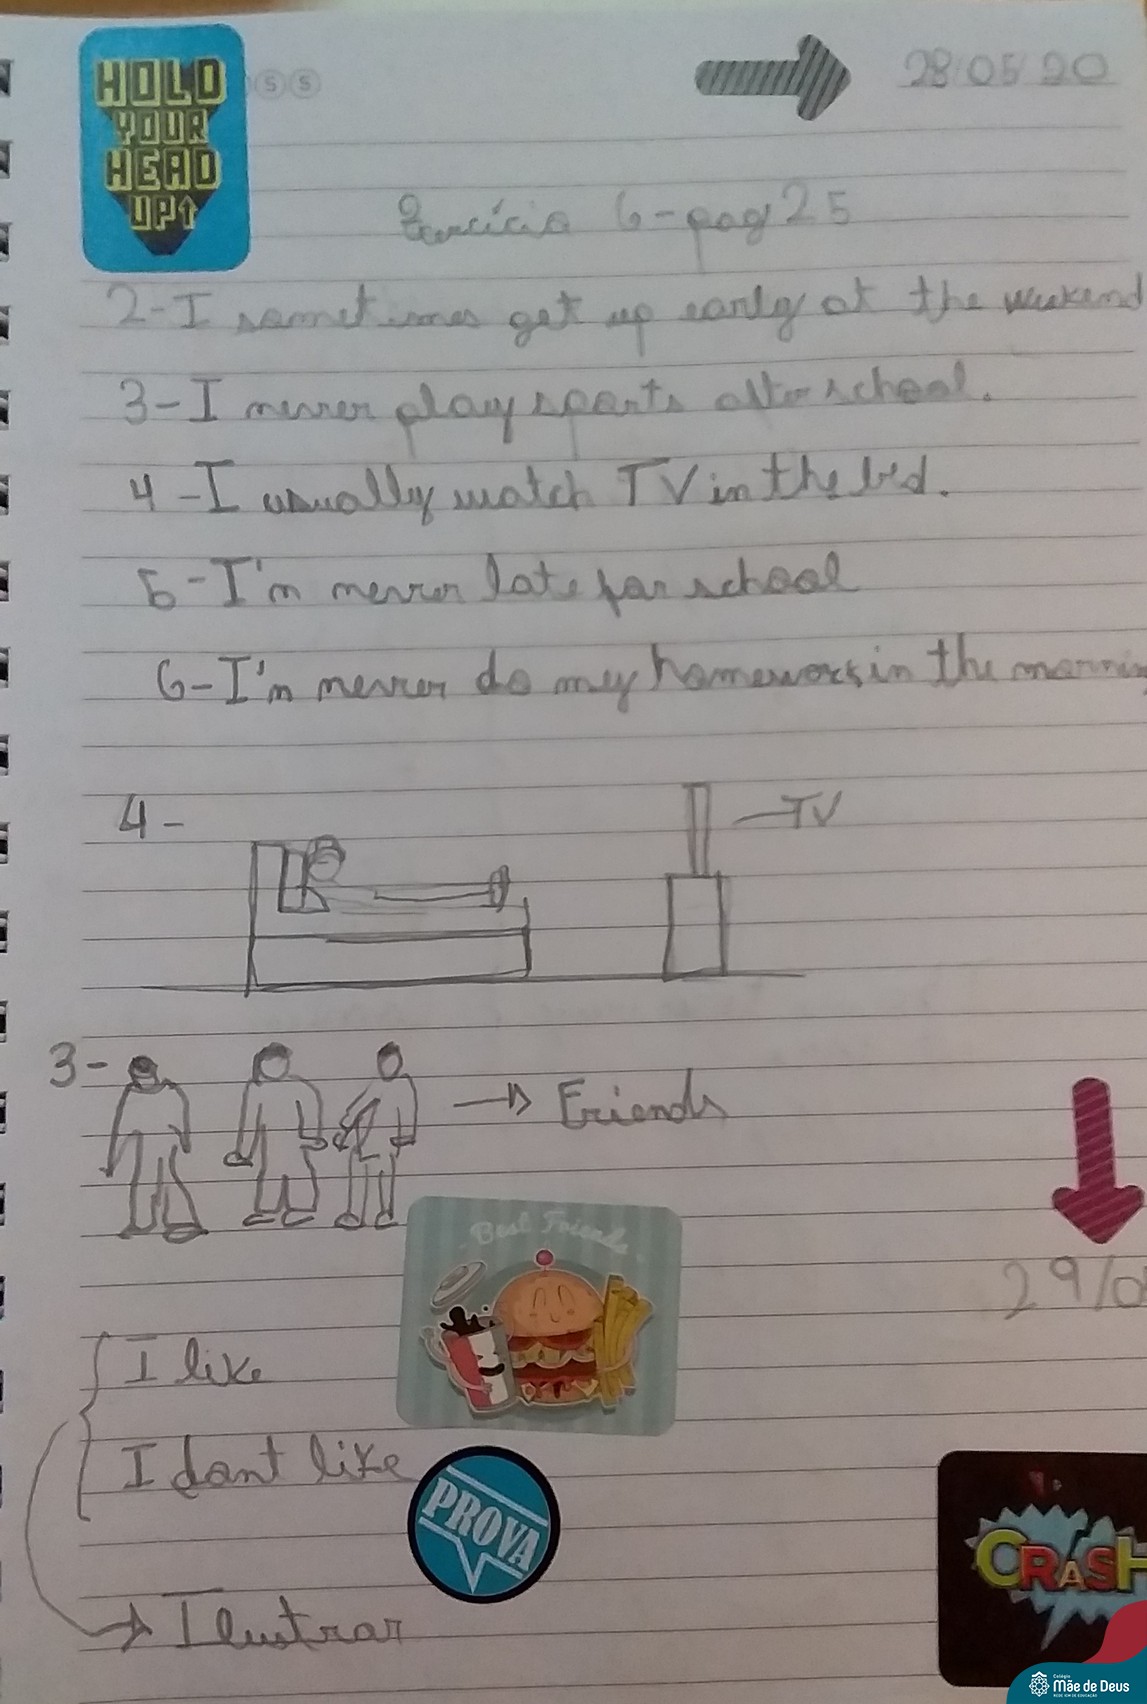 HOLD
YOUR
HEAD
UP↑
S S
28/05/20
Exercício 6-pag 25
2-I sometimes get up early at the weekend
3-I never play sports after school.
4-I usually watch TV in the bed.
5-I'm never late for school
6-I'm never do my homework in the mornin
4-
TV
3-
Friends
Best Friends
29/0
I like
I dont like
PROVA
CRASH
Ilustrar
Colégio
Mãe de Deus